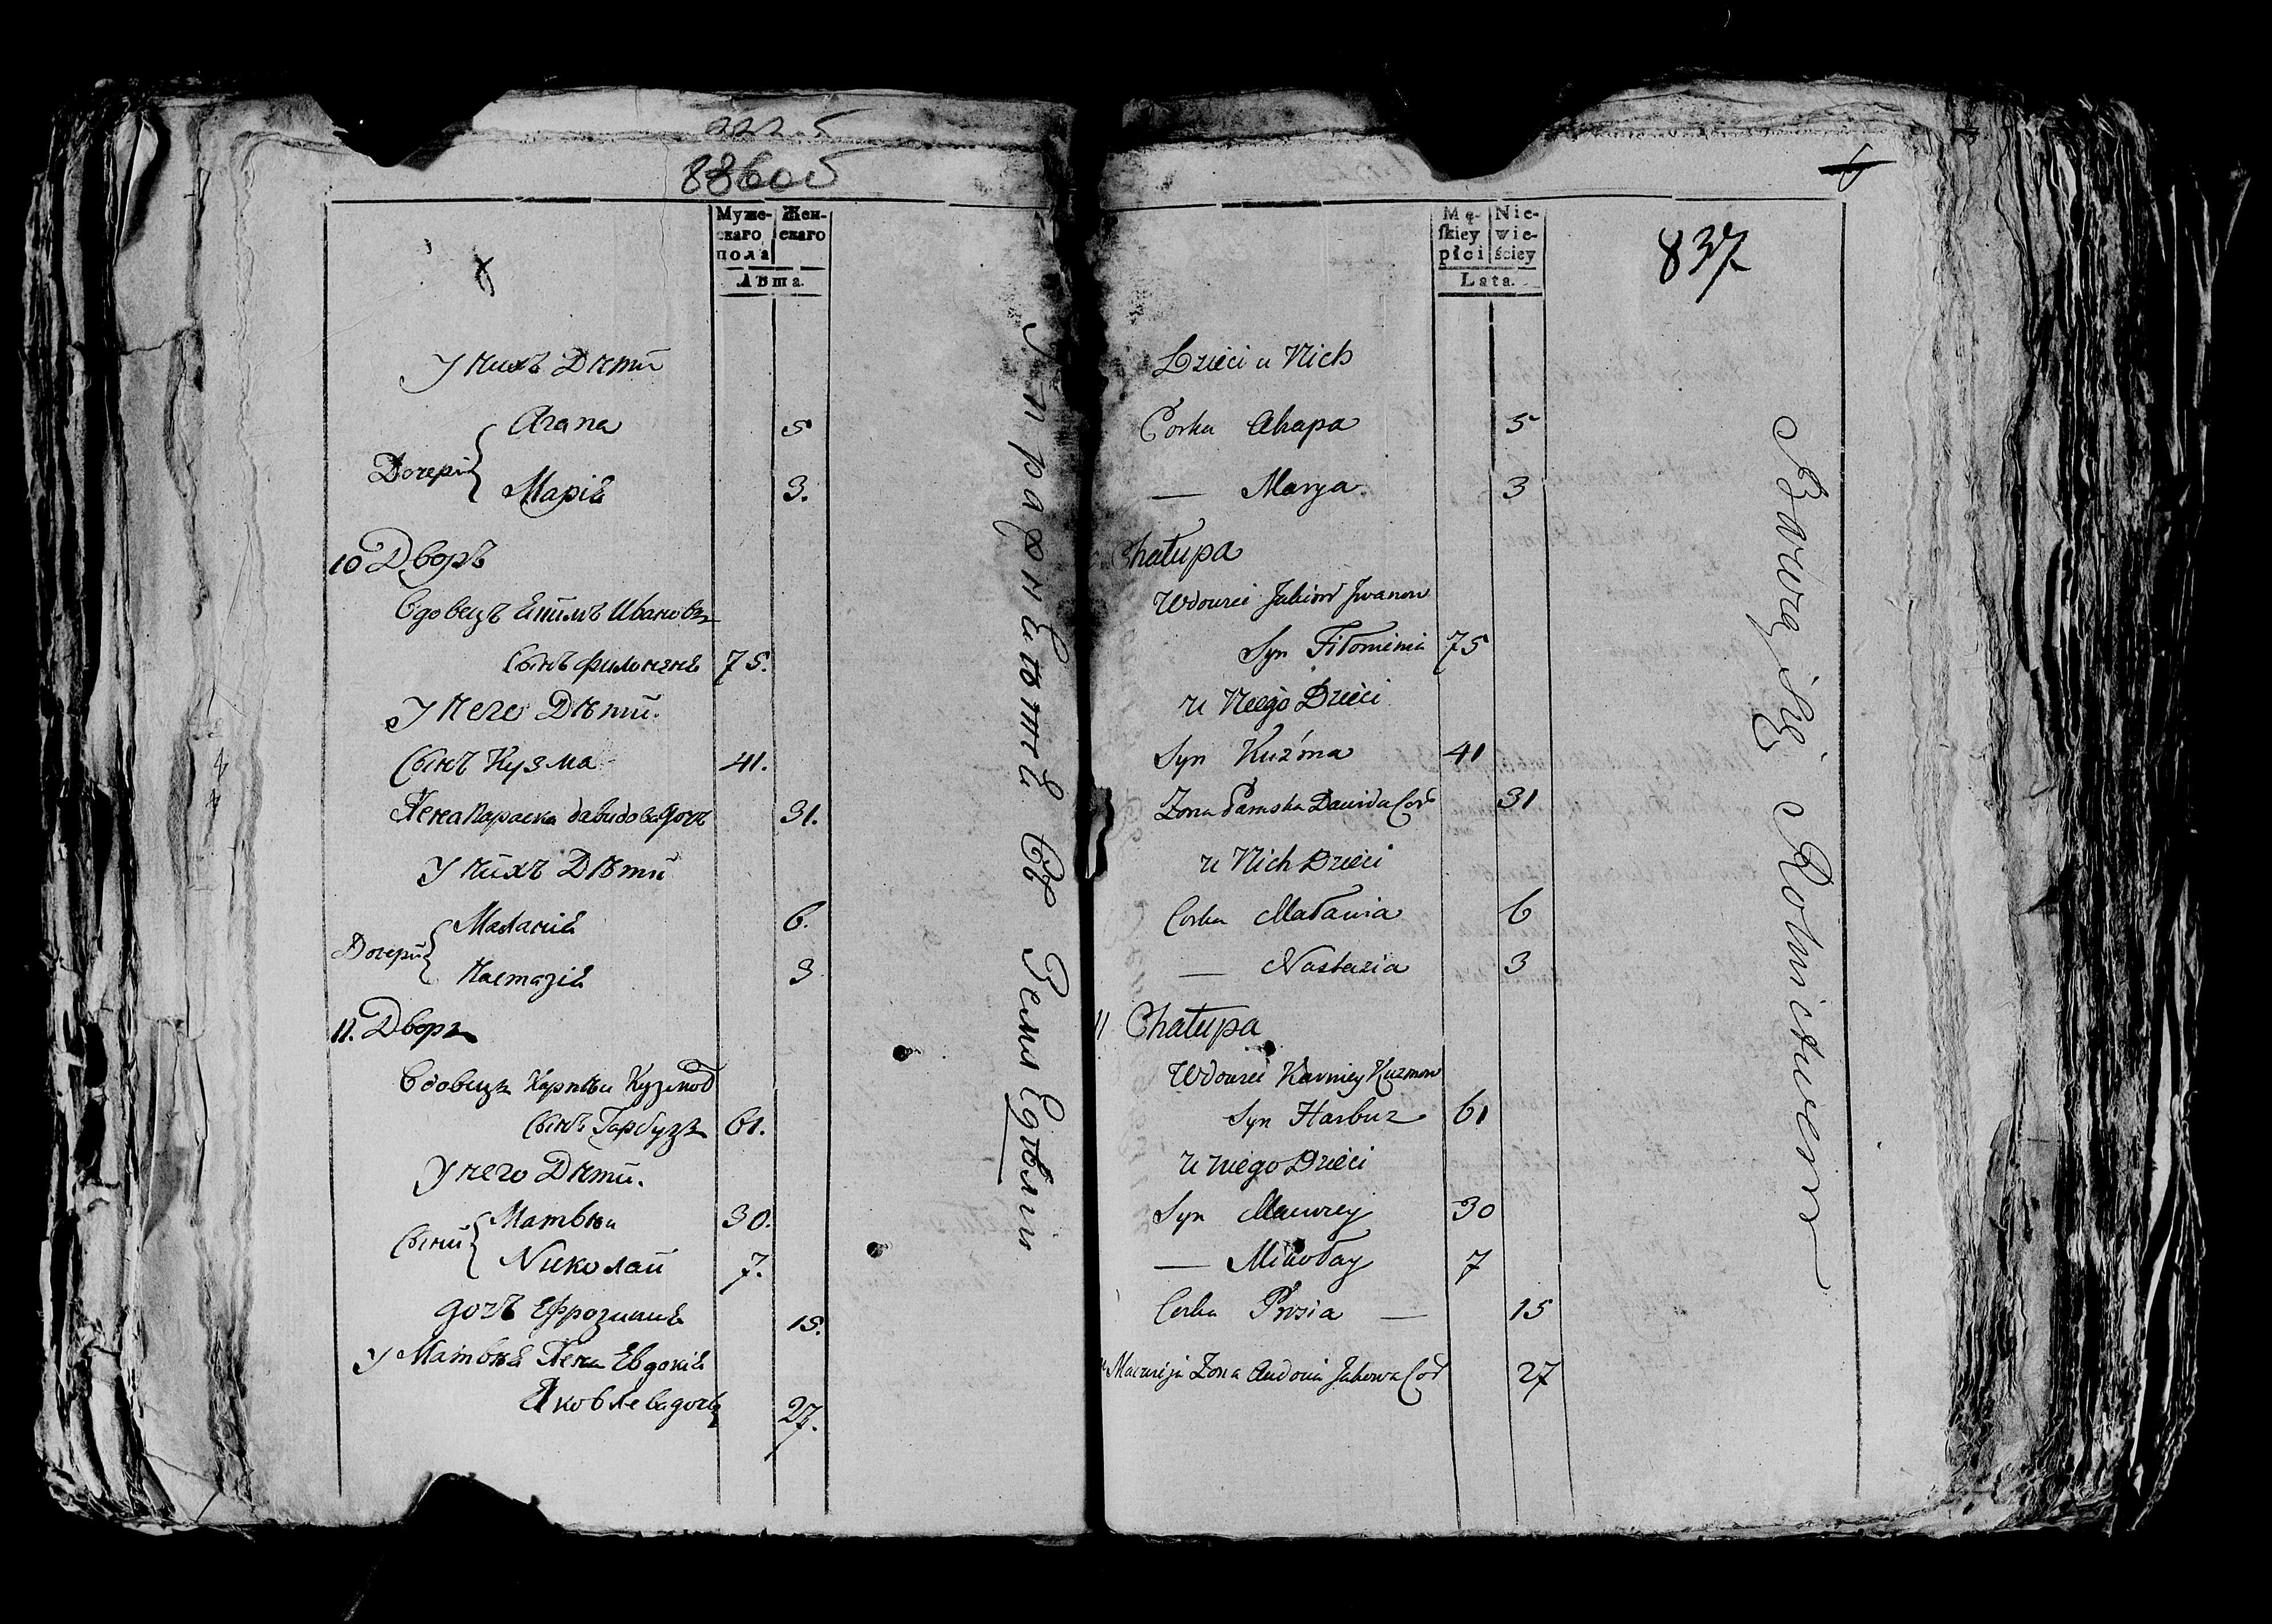 836об
Муже-
скаго
пола
Жен-
скаго
Лѣта.
У нихъ Дѣти
Дочери
Агапа 5
Маріѣ 3.
10 Дворъ
Вдовецъ Ивановъ
Сынъ 75.
У него Дѣти.
Сынъ Кузма 41.
Жена Параска давидова дочь 31.
У нихъ Дѣти
Дочери
Маланіѣ 6.
Настазіѣ 3
11. Дворъ
Вдовецъ Карнѣи Кузмов
Сынъ Гарбузъ 61.
У него Дѣти.
Сыни
Матвѣи 30.
Николай 7.
дочъ Ефрозиніѣ 15.
У Матвѣѣ Жена Евдокіѣ
Яковлева дочь 27.
Mę-
ſkiey
płci
Nie-
wie-
ściey
Lata.
837
Dzieci u Nich
Corka Ahapa 5
— Marya 3
Chałupa
Wdowiec Iwanow
Syn 75
u Niego Dzieci
Syn Kuźma 41
Zona Dawida Cor 31
u Nich Dzieci
Corka Małania 6
— Nastazia 3
11 Chałupa
Wdowiec Karniey Kuzmow
Syn Harbuz 61
u niego Dzieci
Syn Maciwiey 30
— Mikołay 7
Corka Prisia — 15
u Zona Audocia Jakowa Cor 27